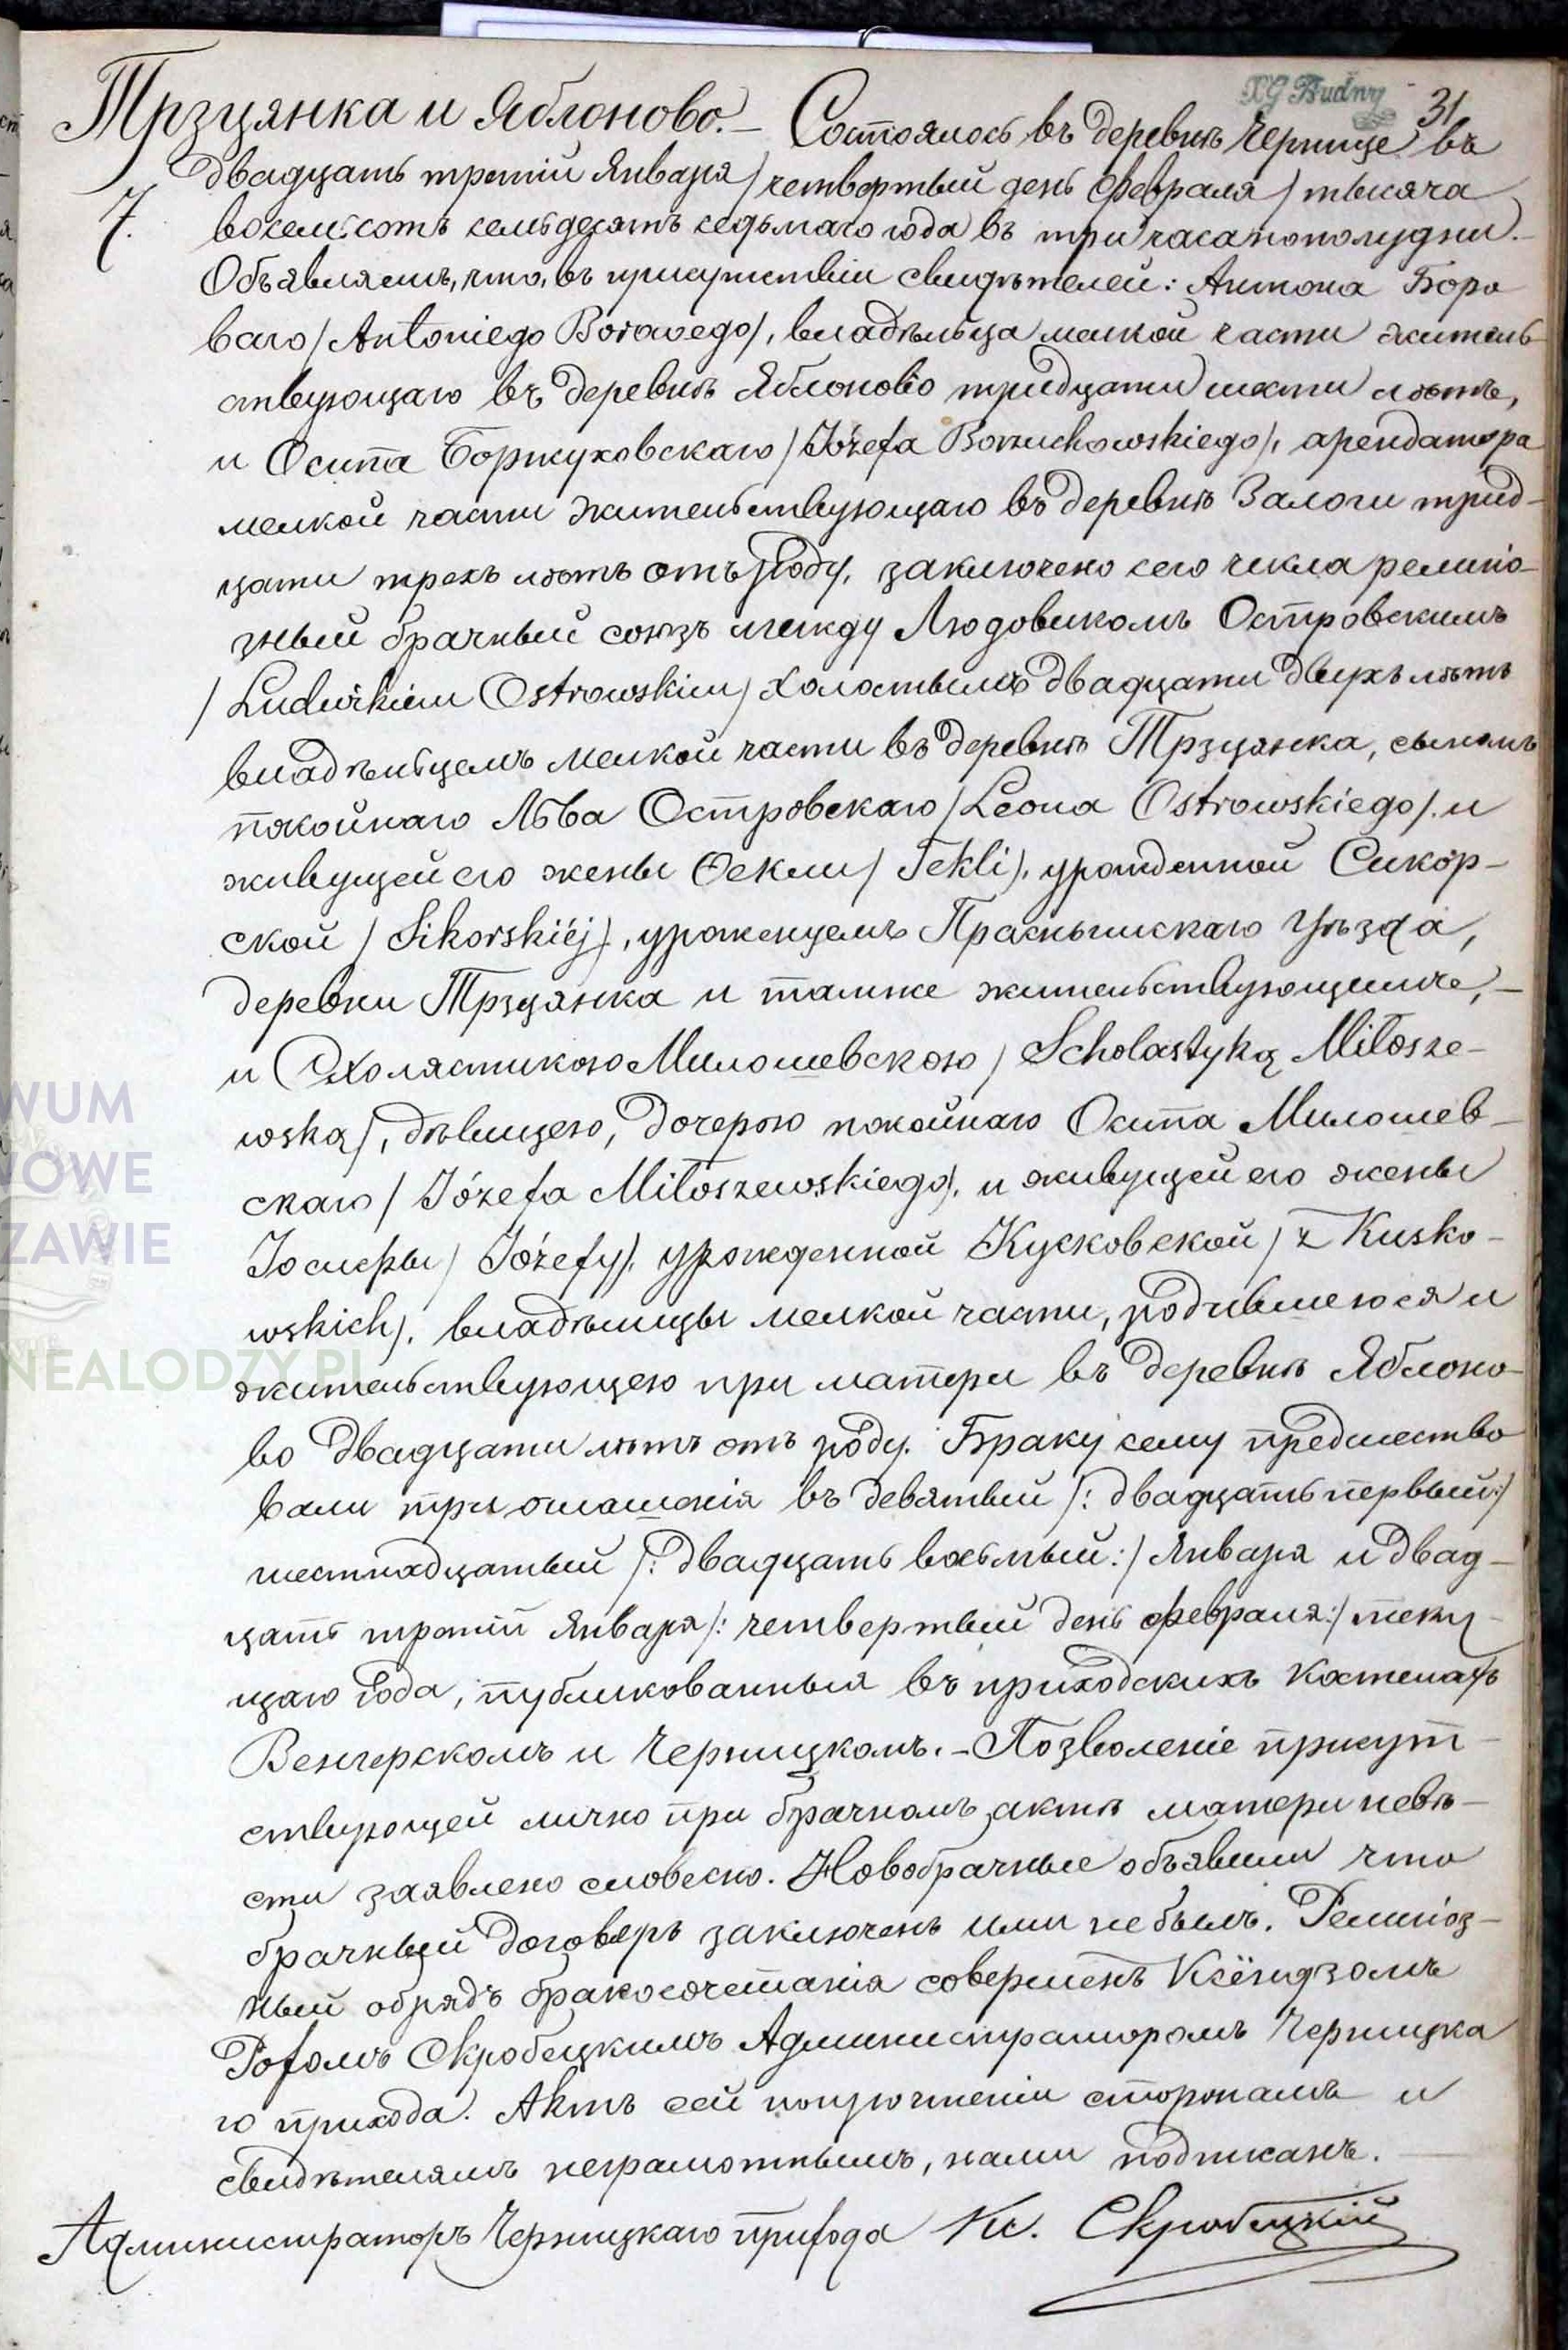 X G Budny 31
Трзцянка и Яблоново. — Состоялось въ деревнѣ Чернице въ
7. двадцать третій Января / четвертый день Февраля / тысяча
восемьсотъ семьдесятъ седьмаго года въ три часа пополудни. —
Объявляемъ, что, въ присутствіи свидѣтелей: Антона Боро
ваго / Antoniego Borowego /, владѣльца мелкой части житель-
ствующаго въ деревнѣ Яблоново тридцати шести лѣтъ,
и Осипа Боржуховскаго / Józefa Borzuchowskiego /, арендатора
мелкой части жительствующаго въ деревнѣ Залоги трид-
цати трехъ лѣтъ отъ роду, заключено сего числа религіо-
зный брачный союзъ между Людовикомъ Островскимъ
/ Ludwikiem Ostrowskim / холостымъ двадцати двухъ лѣтъ
владѣльцемъ мелкой части въ деревнѣ Трзцянка, сыномъ
покойнаго Льва Островскаго / Leona Ostrowskiego /. и
живущей его жены Феклы / Tekli /. урожденной Сикор-
ской / Sikorskiéj /, уроженцемъ Праснышскаго Уѣзда,
деревни Трзцянка и тамже жительствующимъ, —
и Схоластикою Милошевскою / Scholastyką Miłosze-
wską /, дѣвицею, дочерью покойнаго Осипа Милошев-
скаго / Józefa Miłoszewskiego /. и живущей его жены
Іосифы / Józefy /. урожденной Кусковской / z Kusko-
wskich /. владѣлицы мелкой части, родившеюся и
жительствующею при матери въ деревнѣ Яблоно-
во двадцати лѣтъ отъ роду. Браку сему предшество
вали три оглашенія въ девятый /: двадцать первый :/
шестнадцатый /: двадцать восьмый :/ Января и двад-
цать третій Января /: четвертый день Февраля :/ теку-
щаго года, публикованныя въ приходскихъ костелахъ
Венгерскомъ и Черницкомъ. — Позволеніе присут-
ствующей лично при брачномъ актѣ матери невѣ-
сти заявлено словесно. Новобрачные объявили что
брачный договоръ заключенъ ими не былъ. Религіоз-
ный обрядъ бракосочетанія совершенъ Ксёндзомъ
Рохомъ Скробецкимъ Администраторомъ Черницка
го прихода. Актъ сей по прочтеніи сторонамъ и
свидѣтелямъ неграмотнымъ, нами подписанъ. —
Администраторъ Черницкаго прихода Кс. Скробецкій
WUM
WOWE
ZAWIE
NEALODZY.PL